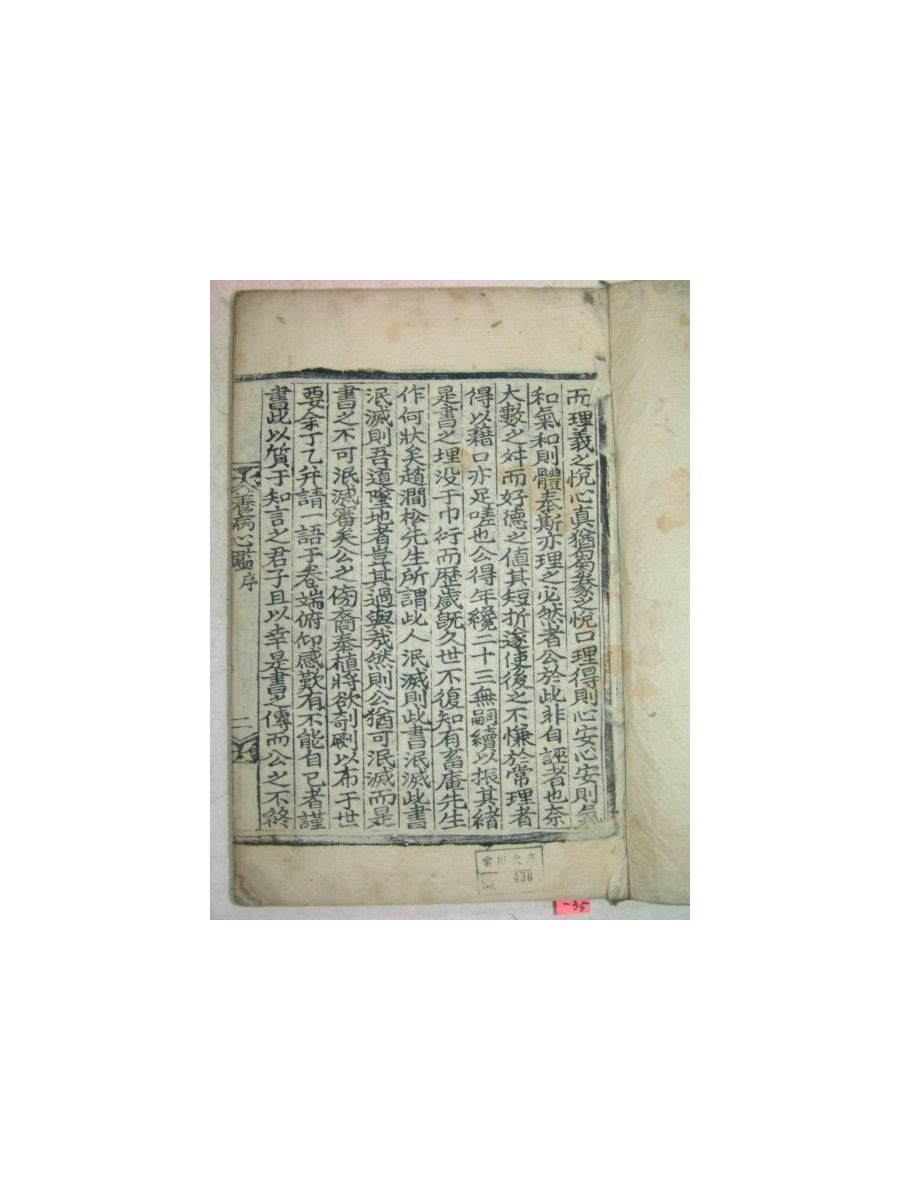 而理義之悅心真猶芻豢之悅口理得則心安心安則氣
和氣和則體泰斯亦理之必然者公於此非自誣者也奈
大數之舛而好德之値其短折遂使後之不慊於常理者
得以藉口亦足嗟也公得年纔二十三無嗣續以振其緖
是書之埋没于巾衍而歷歲旣久世不復知有畜庵先生
作何狀矣趙澗松先生所謂此人泯滅則此書泯滅此書
泯滅則吾道墜地者豈其過與哉然則公猶可泯滅而是
書之不可泯滅審矣公之傍裔奉植將欲剞劂以布于世
要余丁乙幷請一語于卷端俯仰感歎有不能自已者謹
書此以質于知言之君子且以幸是書之傳而公之不終
養病心鑑 序
二
文庫
No. 438
-35